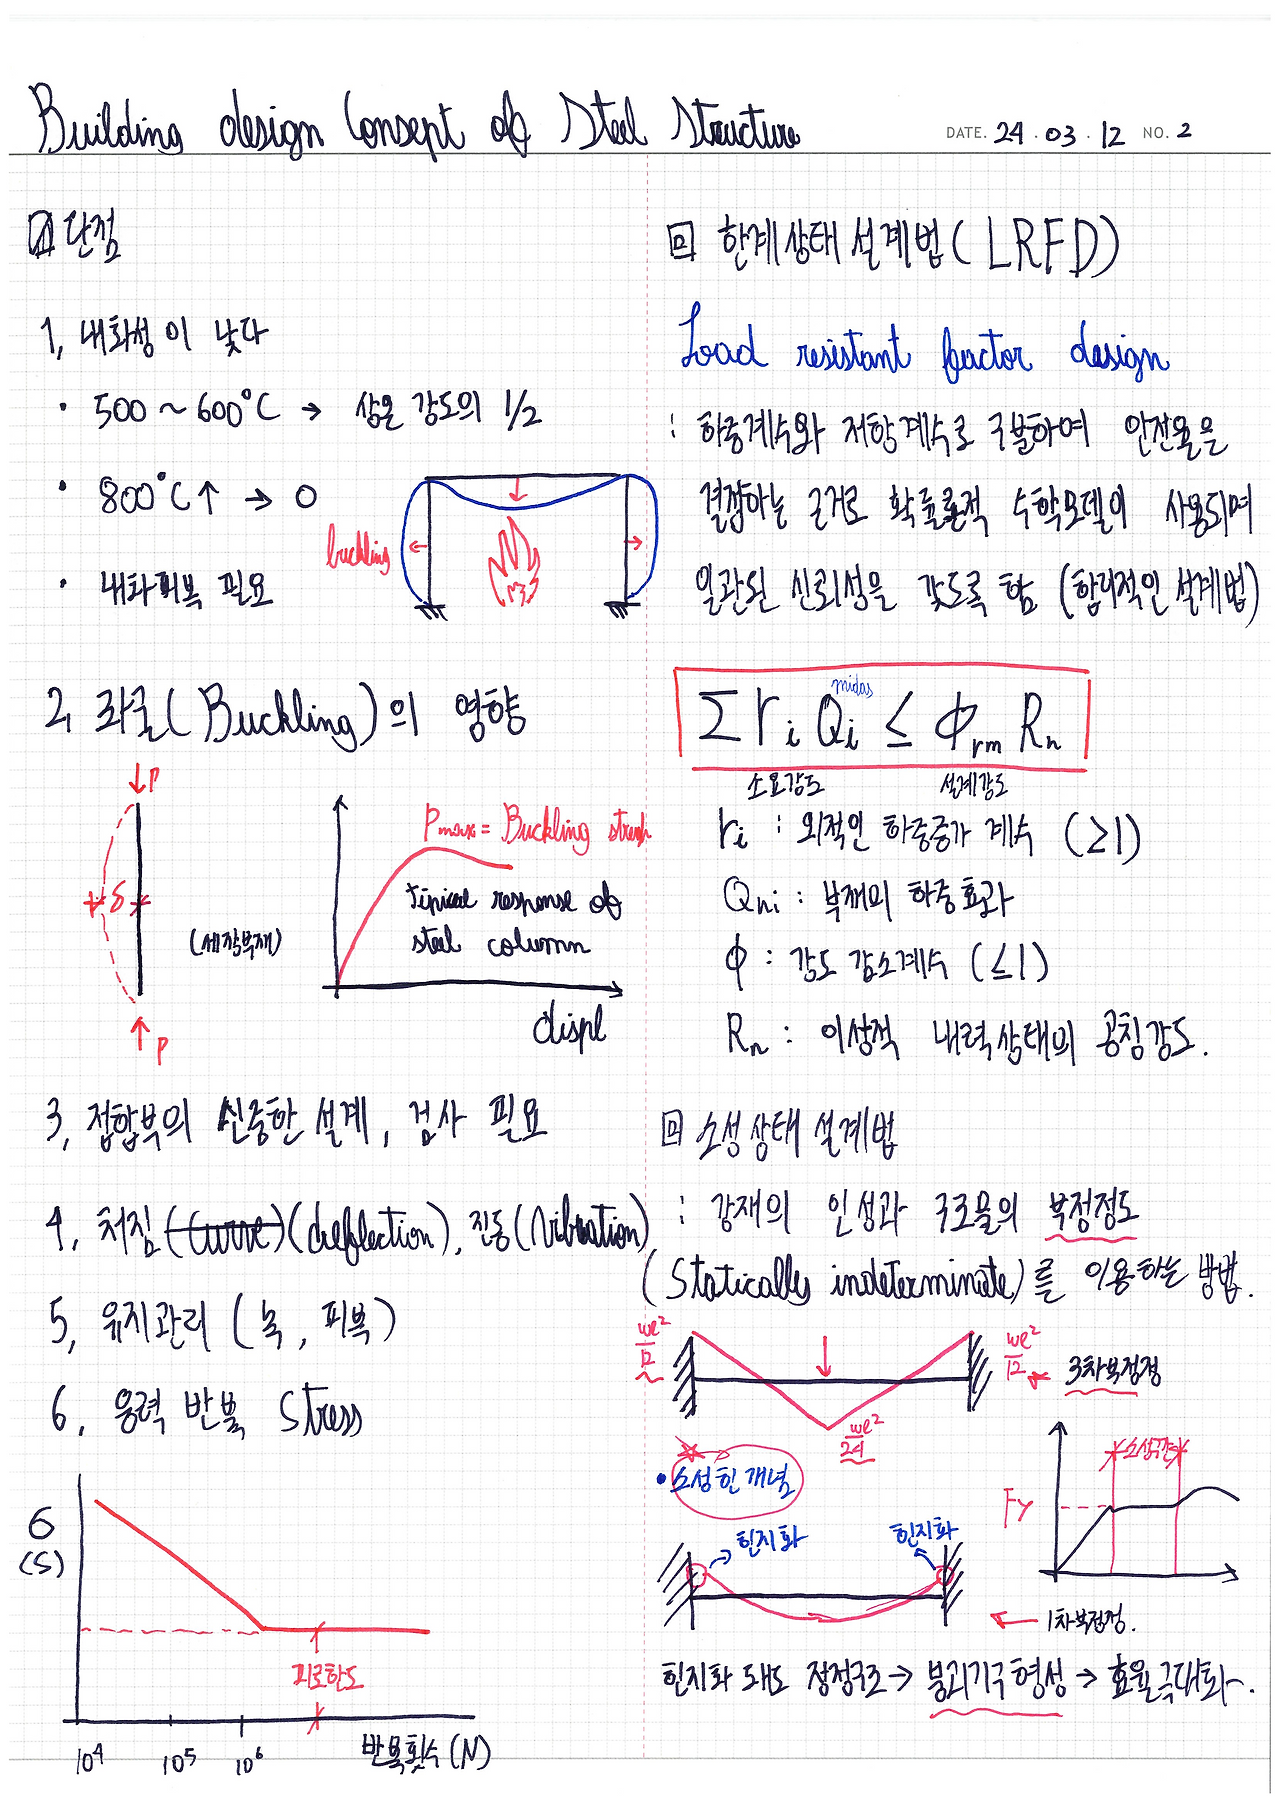 Building design Consept of Steel Structure
DATE. 24 . 03 . 12 NO. 2
단점
1, 내화성이 낮다
· 500 ~ 600°C → 상온 강도의 1/2
· 800°C ↑ → 0
buckling
· 내화피복 필요
2, 좌굴(Buckling)의 영향
P
δ
(세장부재)
P
Pmax = Buckling
tipical response of
steel column
displ
3, 접합부의 신중한 설계, 검사 필요
4, 처짐 (deflection), 진동(Vibration)
5, 유지관리 (녹, 피복)
6, 응력 반복 Stress
6
(S)
피로한도
10⁴ 10⁵ 10⁶ 반복횟수 (N)
回 한계상태 설계법 (LRFD)
Load resistant factor design
: 하중계수와 저항계수로 구분하여 안전율을
결정하는 근거로 확률론적 수학모델이 사용되며
일관된 신뢰성을 갖도록 함 (합리적인 설계법)
midas
Σ ri Qi ≤ ϕrm Rn
소요강도 설계강도
ri : 외적인 하중증가 계수 (≥1)
Qni : 부재의 하중효과
ϕ : 강도 감소계수 (≤1)
Rn : 이상적 내력상태의 공칭강도.
回 소성상태 설계법
: 강재의 인성과 구조물의 부정정도
(Statically indeterminate)를 이용하는 방법.
wl²/12
wl²/12
3차부정정
wl²/24
• 소성힌개념
소성구간
Fy
힌지화 힌지화
1차부정정.
힌지화 돼도 정정구조 → 붕괴기구형성 → 효율극대화.